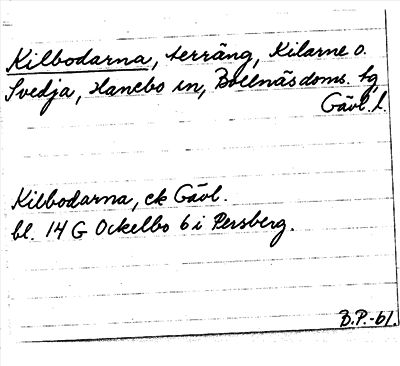 Kilbodarna, terräng, Kilarne o.
Svedja, Hanebo sn, Bollnäs doms. tg
Gävl. l.
Kilbodarna, ek Gävl.
bl. 14 G Ockelbo 6 i Persberg.
B.P.-61.